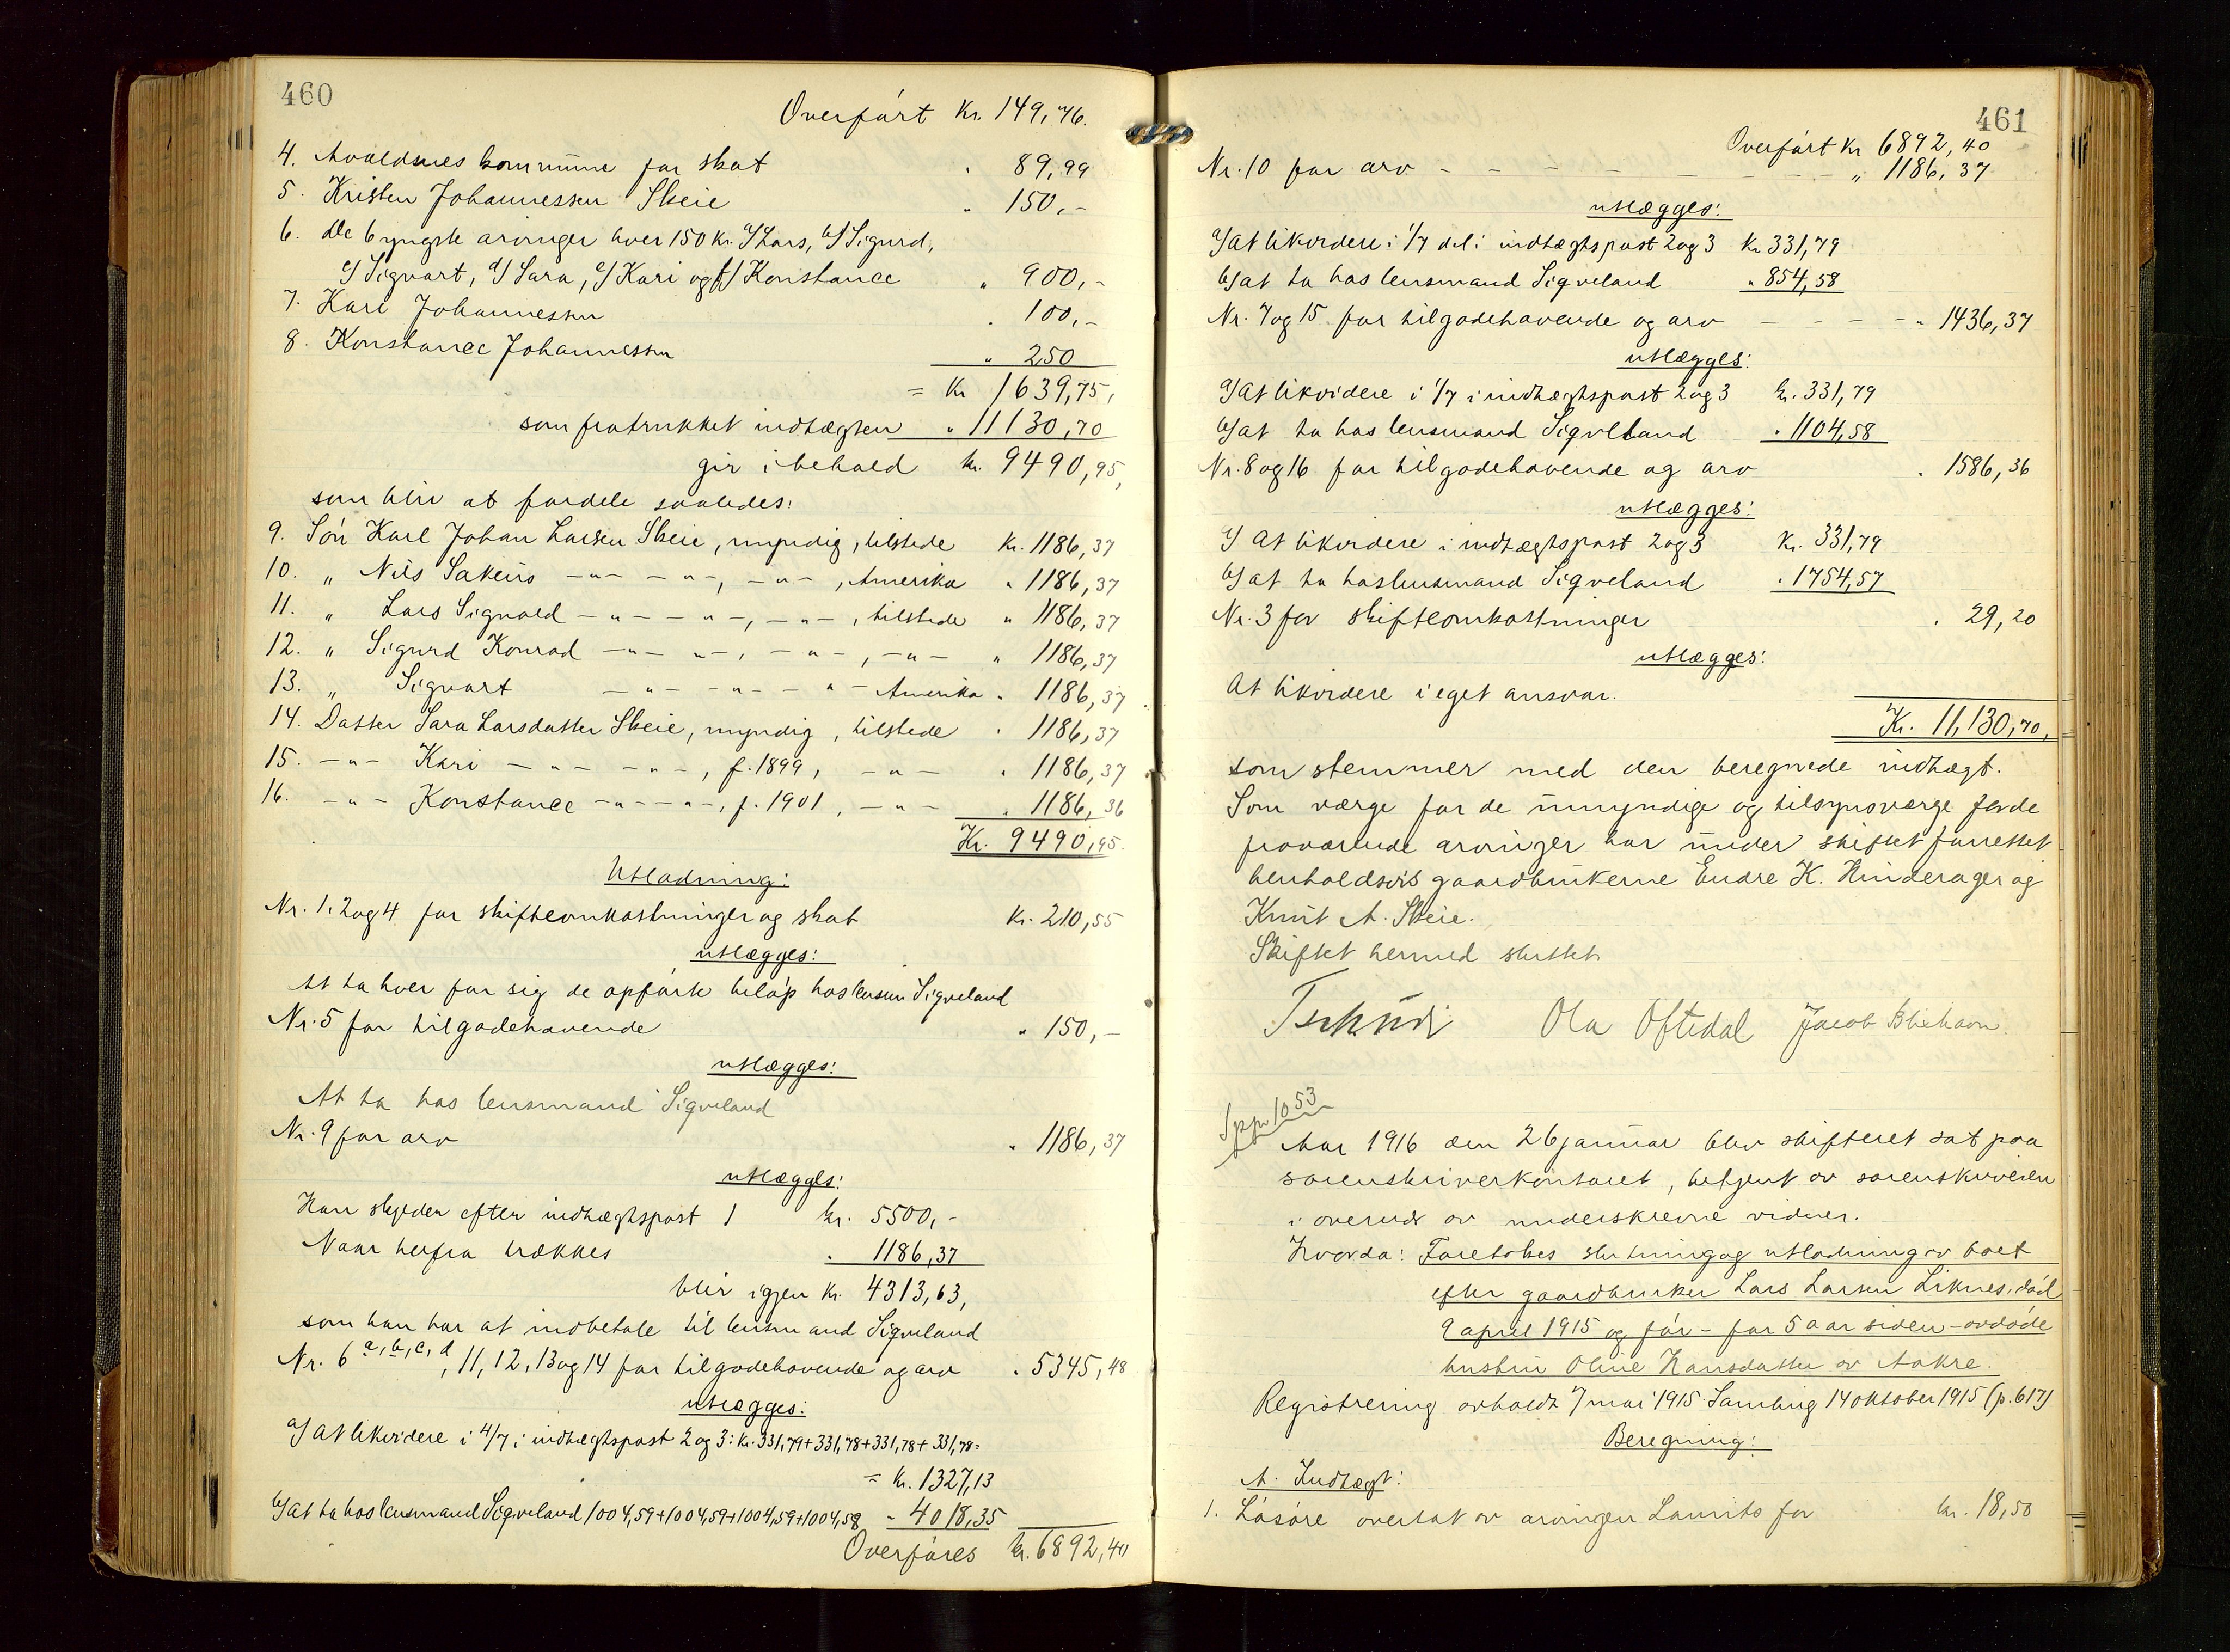 460
Overført Kr. 149,76.
4. Avaldsnes kommune for skat " 89,99
5. Kristen Johannessen Skeie " 150,-
6. De 6 yngste arvinger hver 150 kr. a/ Lars, b/ Sigurd,
c/ Sigvart, d/ Sara, e/ Kari og f/ Konstance " 900,-
7. Kari Johannessen " 100,-
8. Konstance Johannessen " 250
= Kr 1639,75,
som fratrukket indtægten " 11130,70
gir i behold kr. 9490,95,
som blir at fordele saaledes:
9. Søn Karl Johan Larsen Skeie, myndig, tilstede Kr. 1186,37
10. " Nils Sakeus -"- -"-, -"-, Amerika " 1186,37
11. " Lars Sigvald -"- -"-, -"-, tilstede " 1186,37
12. " Sigurd Konrad -"- -"-, -"-, -"- " 1186,37
13. " Sigvart -"- -"- -"- Amerika " 1186,37
14. Datter Sara Larsdatter Skeie, myndig, tilstede " 1186,37
15. -"- Kari -"- -"-, f. 1899, -"- " 1186,37
16. -"- Konstance -"- -"-, f. 1901, -"- " 1186,36
Kr. 9490,95.
Utlodning:
Nr. 1, 2 og 4 for skifteomkostninger og skat Kr. 210,55
utlægges:
At ta hver for sig de opførte beløp hos lensm Sigveland
Nr. 5 for tilgodehavende " 150,-
utlægges:
At ta hos lensmand Sigveland
Nr. 9 for arv " 1186,37
utlægges:
Han skylder efter indtægtspost 1 kr. 5500,-
Naar herfra trækkes " 1186,37
blir igjen kr. 4313,63,
som han har at indbetale til lensmand Sigveland
Nr. 6 a, b, c, d, 11, 12, 13 og 14 for tilgodehavende og arv " 5345,48
utlægges:
a/ At likvidere i 4/7 i indtægtspost 2 og 3: kr. 331,79 + 331,78 + 331,78 + 331,78 =
= kr. 1327,13
b/ at ta hos lensmand Sigveland 1004,59 + 1004,59 + 1004,59 + 1004,58 " 4018,35
Overføres kr. 6892,40
461
Overført kr 6892,40
Nr. 10 for arv - - - - - - - - " 1186,37
utlægges:
a/ At likvidere i 1/7 del i indtægtspost 2 og 3 Kr 331,79
b/ at ta hos lensmand Sigveland " 854,58
Nr. 7 og 15 for tilgodehavende og arv - - - - " 1436,37
utlægges:
a/ At likvidere i 1/7 i indtægtspost 2 og 3 kr. 331,79
b/ at ta hos lensmand Sigveland " 1104,58
Nr. 8 og 16 for tilgodehavende og arv " 1586,36
utlægges:
a/ At likvidere i indtægtspost 2 og 3 Kr. 331,79
b/ at ta hos lensmand Sigveland " 1754,57
Nr. 3 for skifteomkostninger " 29,20
utlægges:
At likvidere i eget ansvar.
Kr. 11,130,70,
som stemmer med den beregnede indtægt.
Som værge for de umyndige og tilsynsværge for de
fraværende arvinger har under skiftet forrettet
henholdsvis gaardbrukerne Endre K. Hinderager og
Knut A. Skeie.
Skiftet hermed sluttet
Tschudi Ola Oftedal Jacob
1053
Aar 1916 den 26 januar blev skifteret sat paa
sorenskriverkontoret, betjent av sorenskriveren
i overvær av underskrevne vidner.
Hvorda: Foretokes slutning og utlodning av boet
efter gaardbruker Lars Larsen Liknes, død
9 april 1915 og før - for 5 aar siden - avdøde
hustru Oline Hansdatter av Aakre.
Registrering avholdt 7 mai 1915 Samling 14 oktober 1915 (p. 617)
Beregning:
A. Indtægt:
1. Løsøre overtat av arvingen Laurits for kr. 18,50